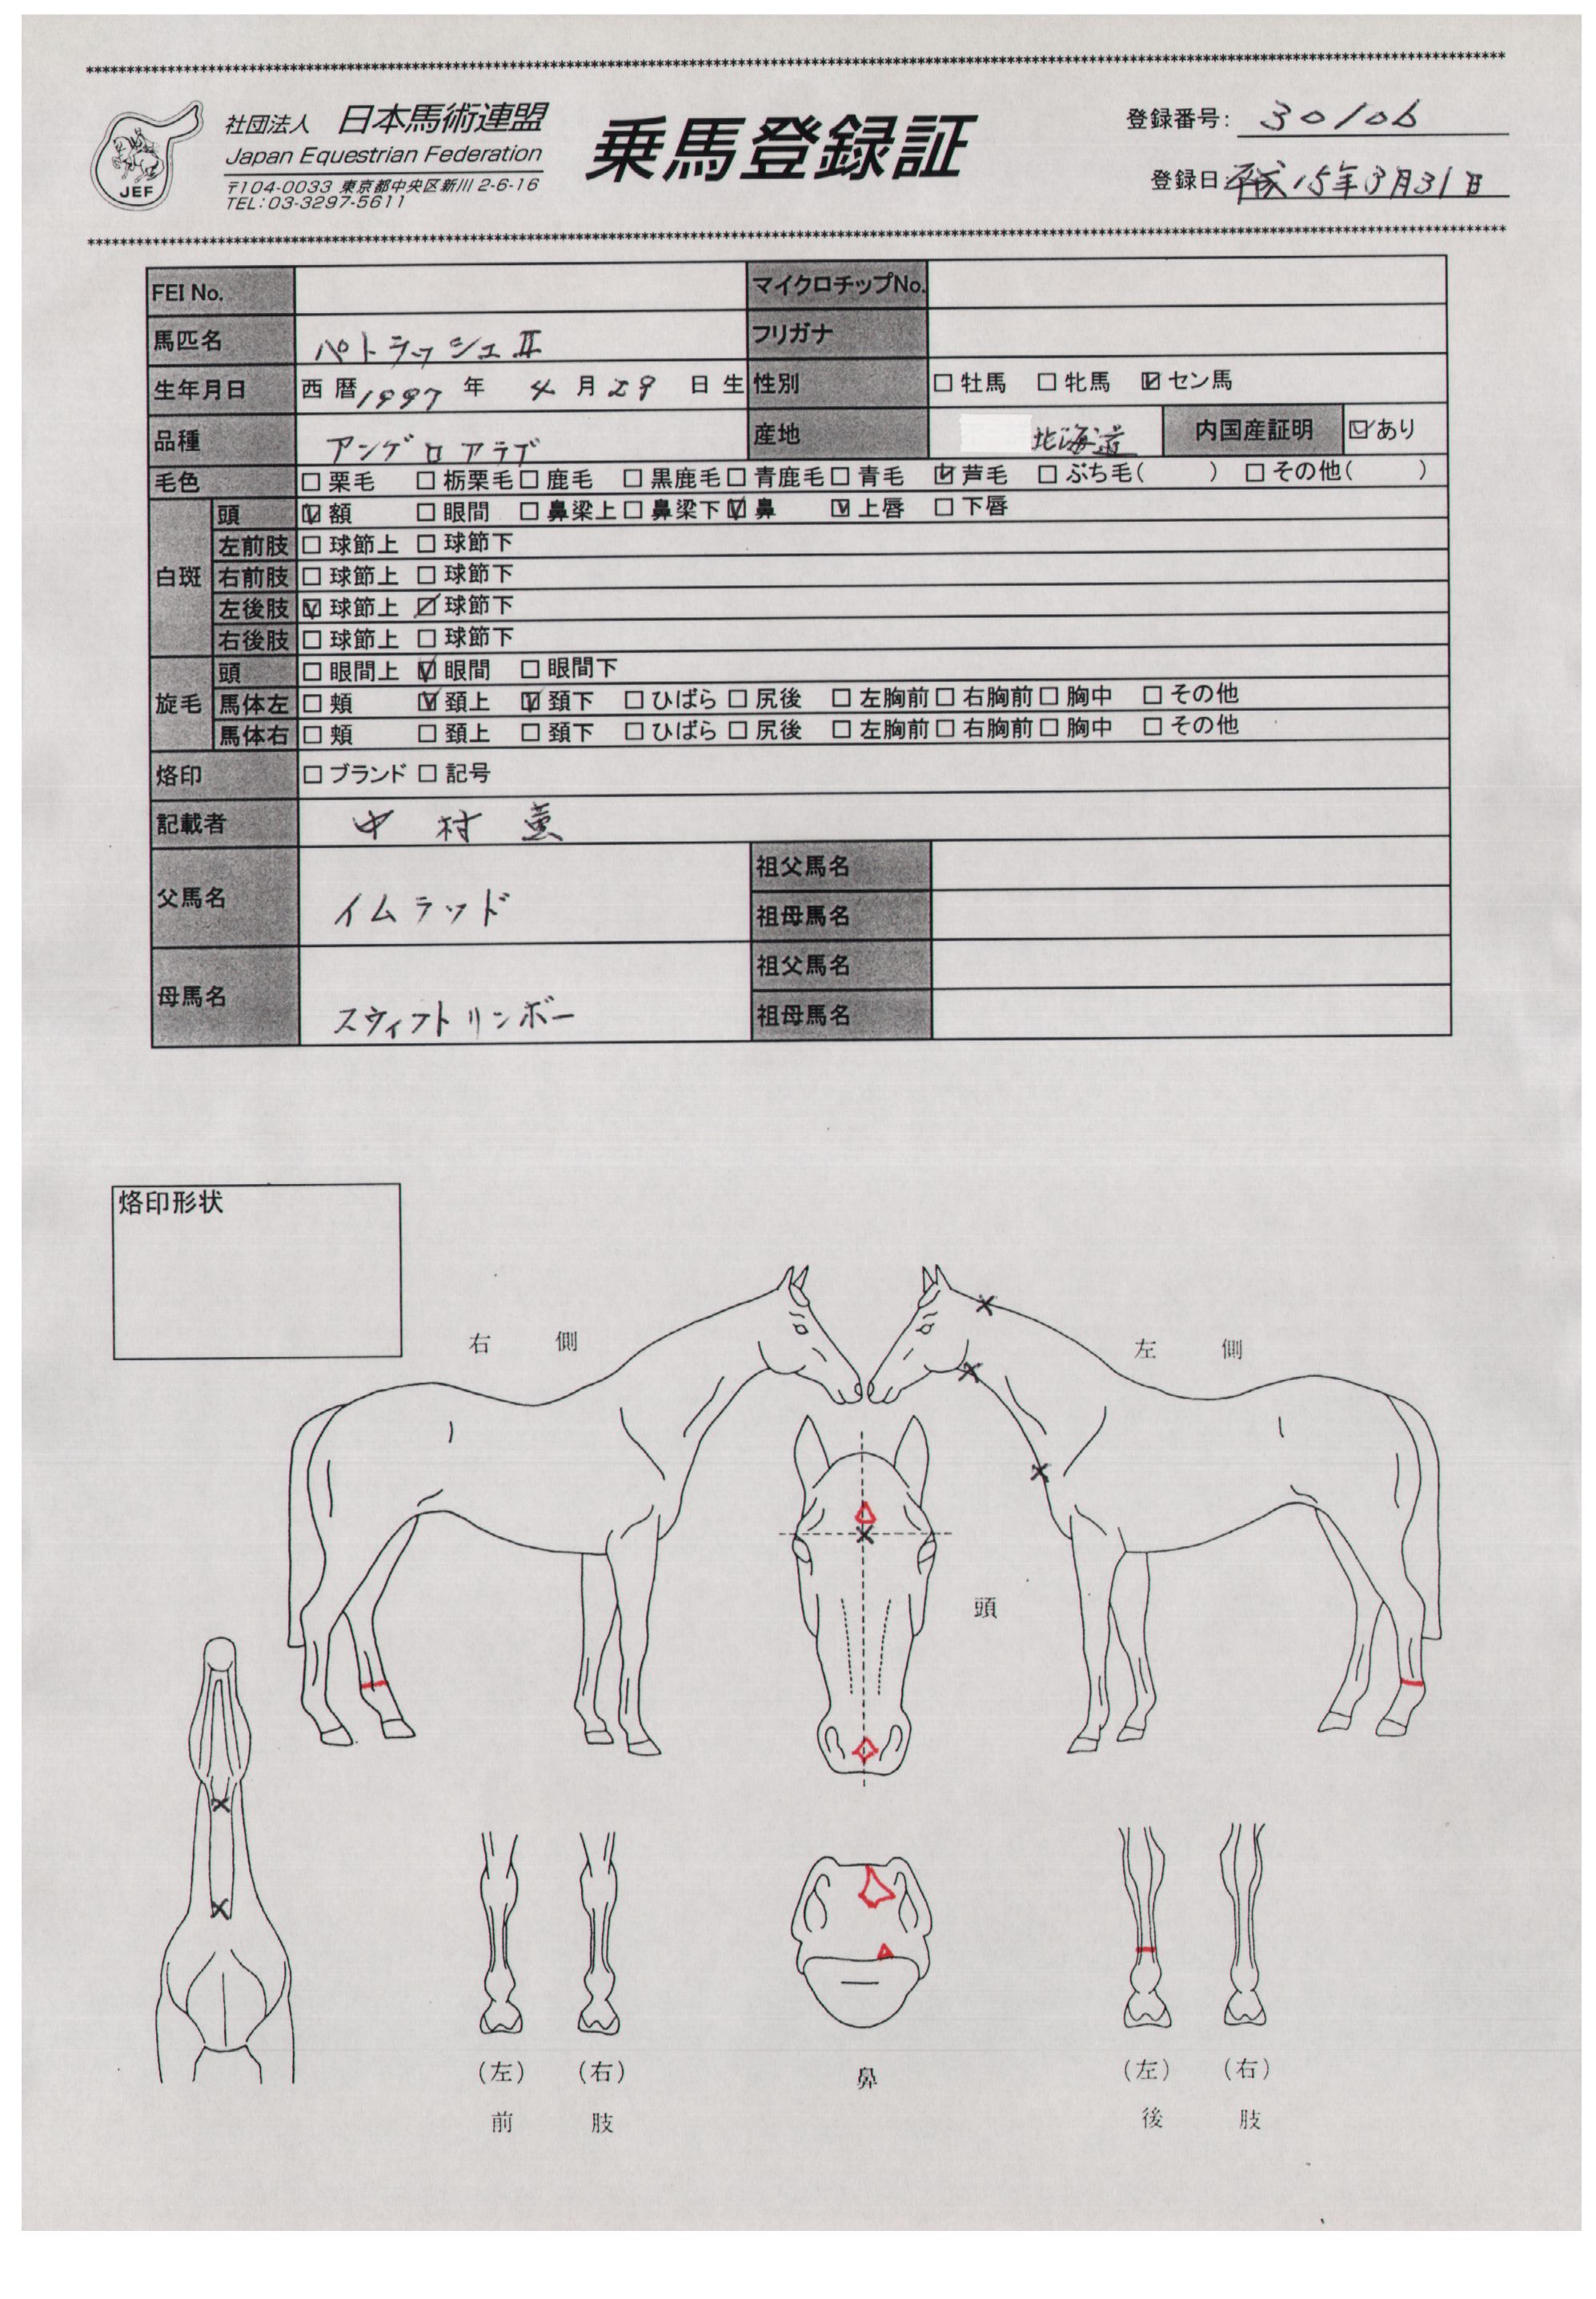 社団法人 日本馬術連盟
Japan Equestrian Federation
〒104-0033 東京都中央区新川 2-6-16
TEL：03-3297-5611
JEF
乗馬登録証
登録番号： 30106
登録日 平成15年3月31日
FEI No. マイクロチップNo.
馬匹名 パトラッシュⅡ フリガナ
生年月日 西暦 1997 年 4 月 29 日 生 性別 □ 牡馬 □ 牝馬 ☑ セン馬
品種 アングロアラブ 産地 北海道 内国産証明 ☑ あり
毛色 □ 栗毛 □ 栃栗毛 □ 鹿毛 □ 黒鹿毛 □ 青鹿毛 □ 青毛 ☑ 芦毛 □ ぶち毛( ) □ その他( )
白斑 頭 ☑ 額 □ 眼間 □ 鼻梁上 □ 鼻梁下 ☑ 鼻 ☑ 上唇 □ 下唇
左前肢 □ 球節上 □ 球節下
右前肢 □ 球節上 □ 球節下
左後肢 ☑ 球節上 ☑ 球節下
右後肢 □ 球節上 □ 球節下
旋毛 頭 □ 眼間上 ☑ 眼間 □ 眼間下
馬体左 □ 頬 ☑ 頚上 ☑ 頚下 □ ひばら □ 尻後 □ 左胸前 □ 右胸前 □ 胸中 □ その他
馬体右 □ 頬 □ 頚上 □ 頚下 □ ひばら □ 尻後 □ 左胸前 □ 右胸前 □ 胸中 □ その他
烙印 □ ブランド □ 記号
記載者 中村 薫
父馬名 イムラッド 祖父馬名
祖母馬名
母馬名 スウィフトリンボー 祖父馬名
祖母馬名
烙印形状
右側
左側
頭
(左) (右)
前肢
鼻
(左) (右)
後肢